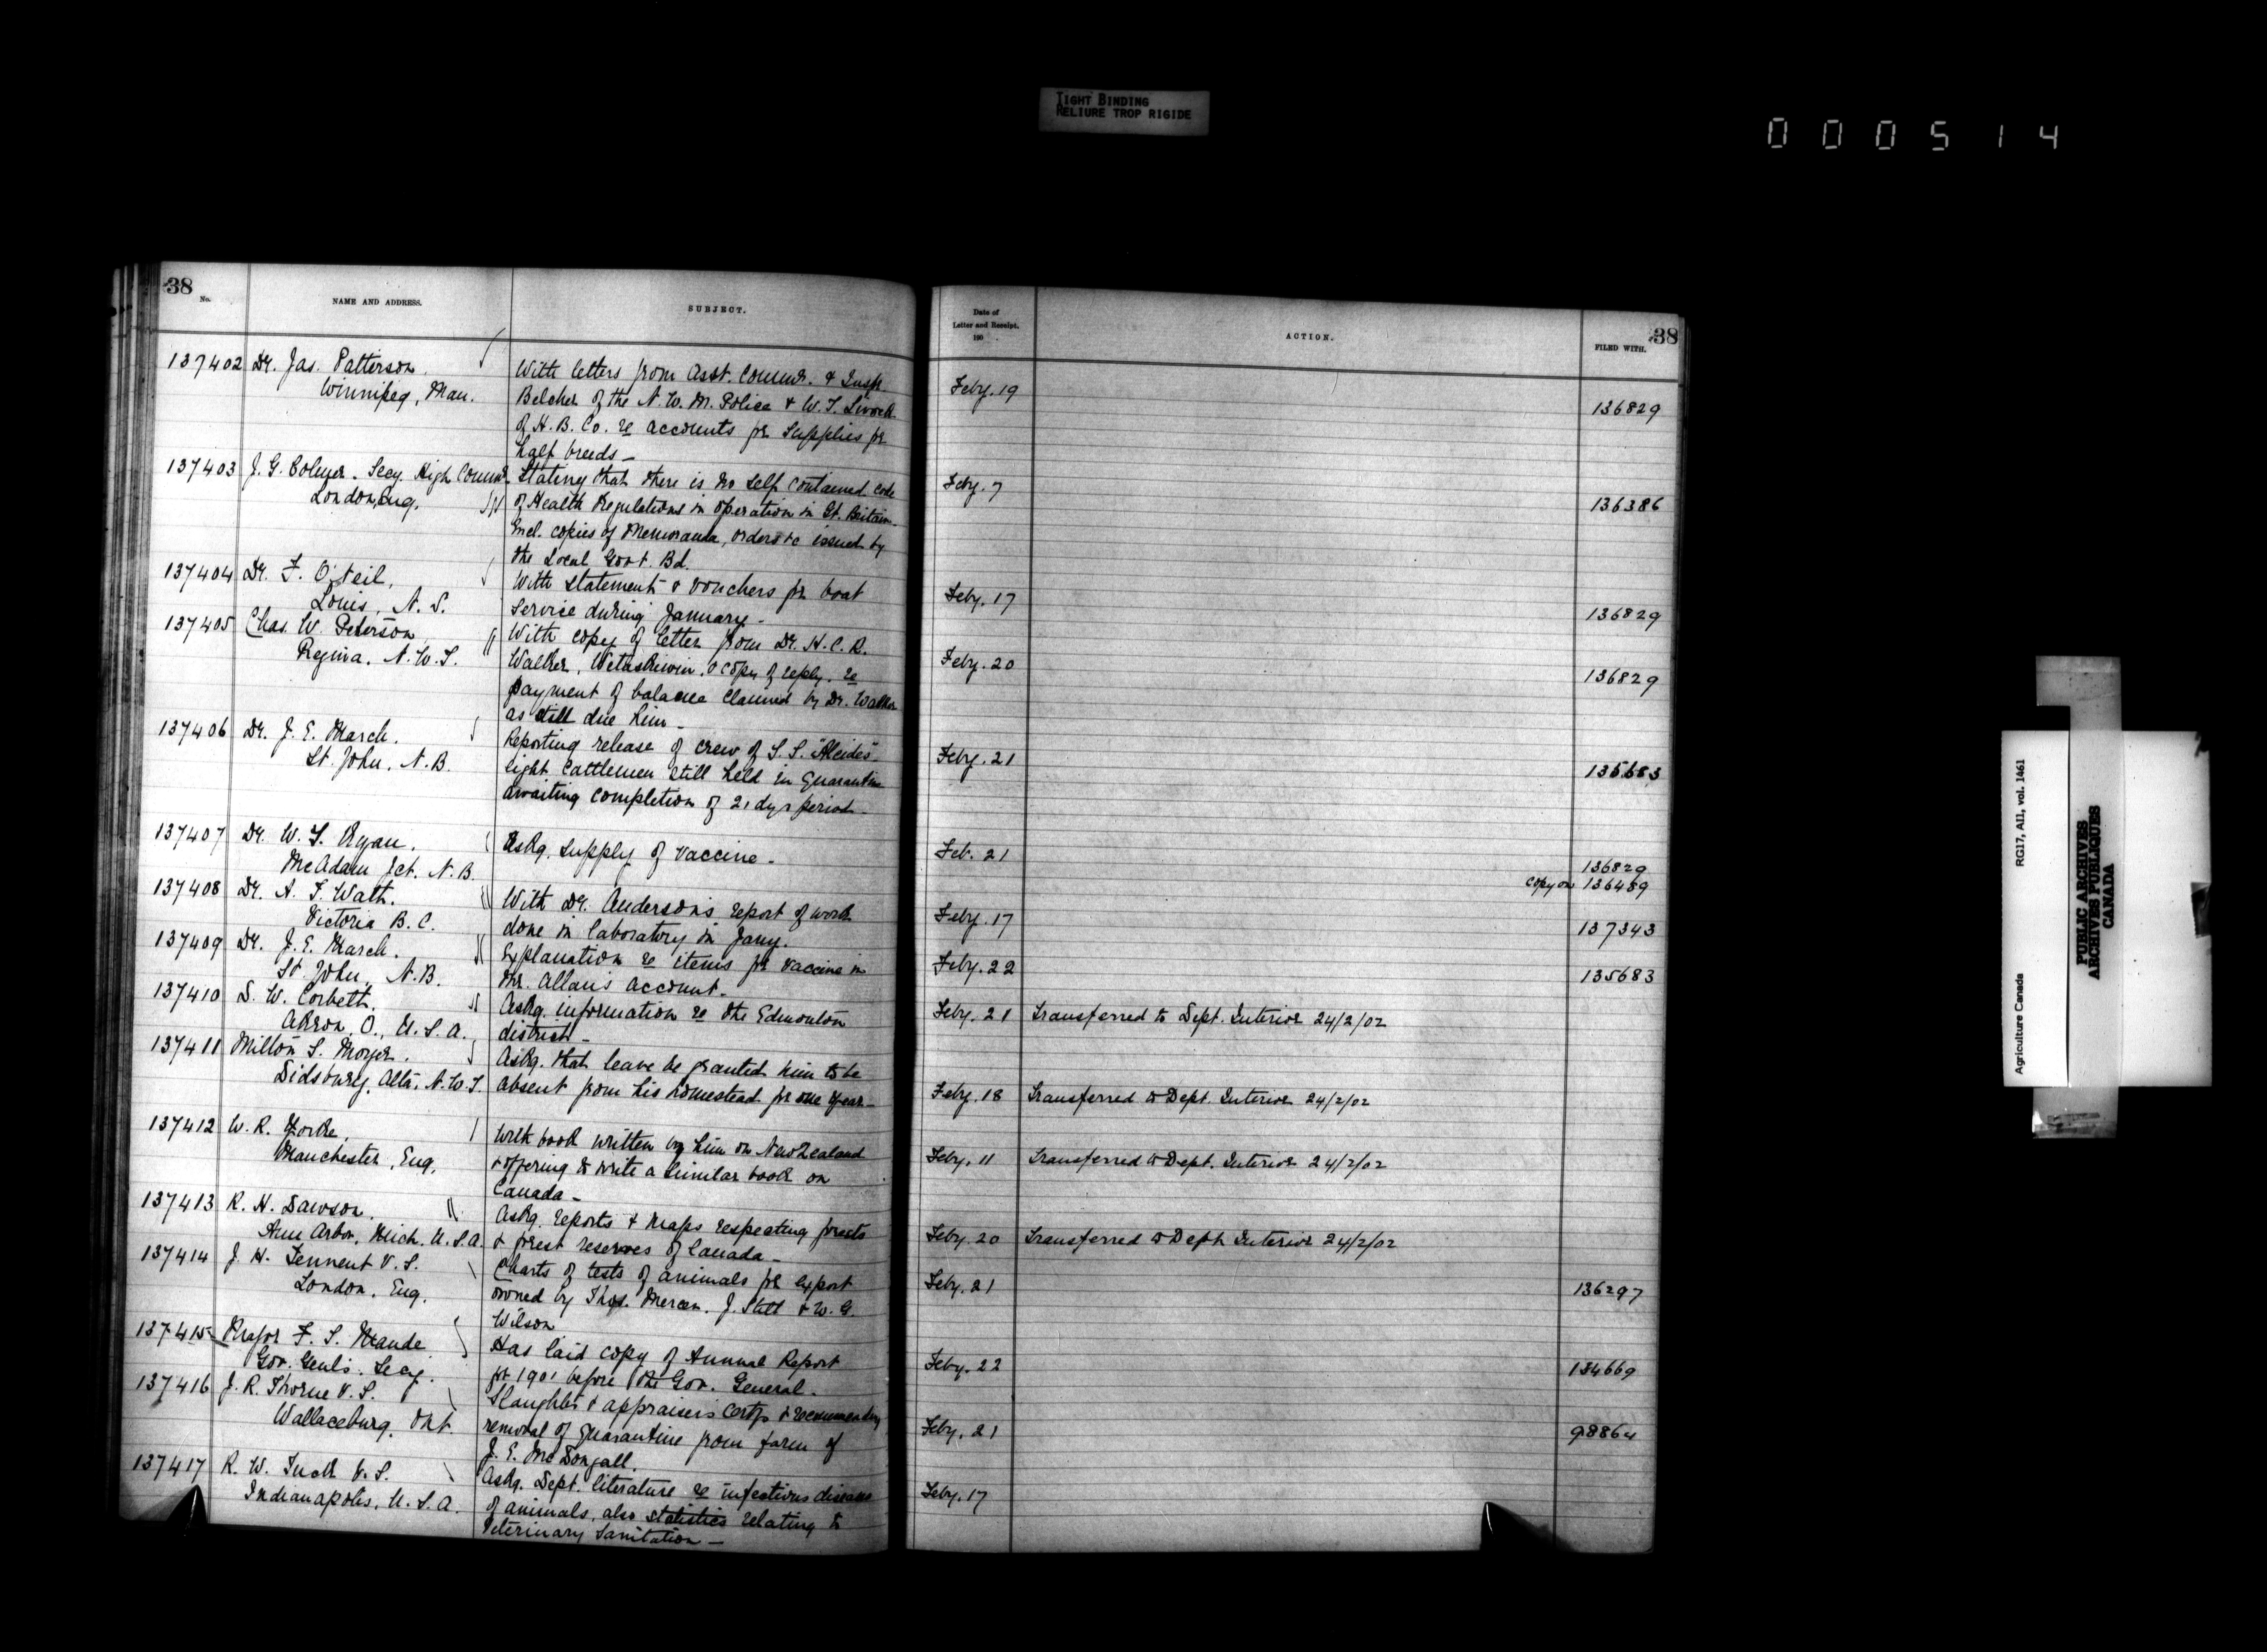 TIGHT BINDING
RELIURE TROP RIGIDE
000514
38
No.
NAME AND ADDRESS.
SUBJECT.
137402 Dr. Jas. Patterson
Winnipeg, Man.
With letters from Asst. Commr. & Insp.
Belcher of the N. W. M. Police & W. T.
of H. B. Co. re accounts for supplies for
half breeds -
137403 J. G. Colmer. Secy. High Commr.
London, Eng.
Stating that there is no self contained code
of Health Regulations in operation in Gt. Britain.
Encl. copies of Memoranda, orders &c issued by
the Local Govt. Bd.
137404 Dr. F. O'Neil,
Louis, N. S.
With statement & vouchers for boat
service during January -
137405 Chas. W. Peterson
Regina, N. W. T.
With copy of letter from Dr. H. C. R.
Walker, Wetaskiwin, & copy of reply. re
payment of balance claimed by Dr. Walker
as still due him -
137406 Dr. J. E. March.
St. John, N. B.
Reporting release of crew of S. S. "Alcides".
Eight Cattlemen still held in Quarantine
awaiting completion of 21 dys period -
137407 Dr. W. L. Ryan.
McAdam Jct. N. B.
Askg. supply of vaccine -
137408 Dr. A. T. Watt.
Victoria B. C.
With Dr. Anderson's report of work
done in laboratory in Jany.
137409 Dr. J. E. March.
St. John, N. B.
Explanation re items for vaccine in
Mr. Allan's account -
137410 S. W. Corbett,
Akron, O., U. S. A.
Askg. information re the Edmonton
district -
137411 Milton S. Moyer.
Didsbury, Alta, N. W. T.
Askg. that leave be granted him to be
absent from his homestead for one year -
137412 W. R. Yorke,
Manchester, Eng.
With book written by him on New Zealand
& offering to write a similar book on
Canada -
137413 R. H. Dawson.
Ann Arbor, Mich. U. S. A.
Askg. reports & maps respecting forests
& forest reserves of Canada -
137414 J. H. Tennent V. S.
London, Eng.
Charts of tests of animals for export
owned by Thos. Mercer, J. Still & W. G.
Wilson
137415 Major F. S. Maude
Gov. Genl's. Secy.
Has laid copy of Annual Report
for 1901 before the Gov. General -
137416 J. R. Thorne V. S.
Wallaceburg, Ont.
Slaughter & appraisers certfs & recommending
removal of quarantine from farm of
J. E. McDougall.
137417 R. W. Tuck V. S.
Indianapolis, U. S. A.
Askg. Dept. literature re infectious diseases
of animals, also statistics relating to
Veterinary Sanitation -
Date of
Letter and Receipt.
190
ACTION.
FILED WITH.
38
Feby. 19 136829
Feby. 7 136386
Feby. 17 136829
Feby. 20 136829
Feby. 21 135683
Feb. 21 136829
Copy on 136489
Feby. 17 137343
Feby. 22 135683
Feby. 21 Transferred to Dept. Interior 24/2/02
Feby. 18 Transferred to Dept. Interior 24/2/02
Feby. 11 Transferred to Dept. Interior 24/2/02
Feby. 20 Transferred to Dept. Interior 24/2/02
Feby. 21 136297
Feby. 22 134669
Feby. 21 98864
Feby. 17
Agriculture Canada
RG17, AII, vol. 1461
PUBLIC ARCHIVES
ARCHIVES PUBLIQUES
CANADA